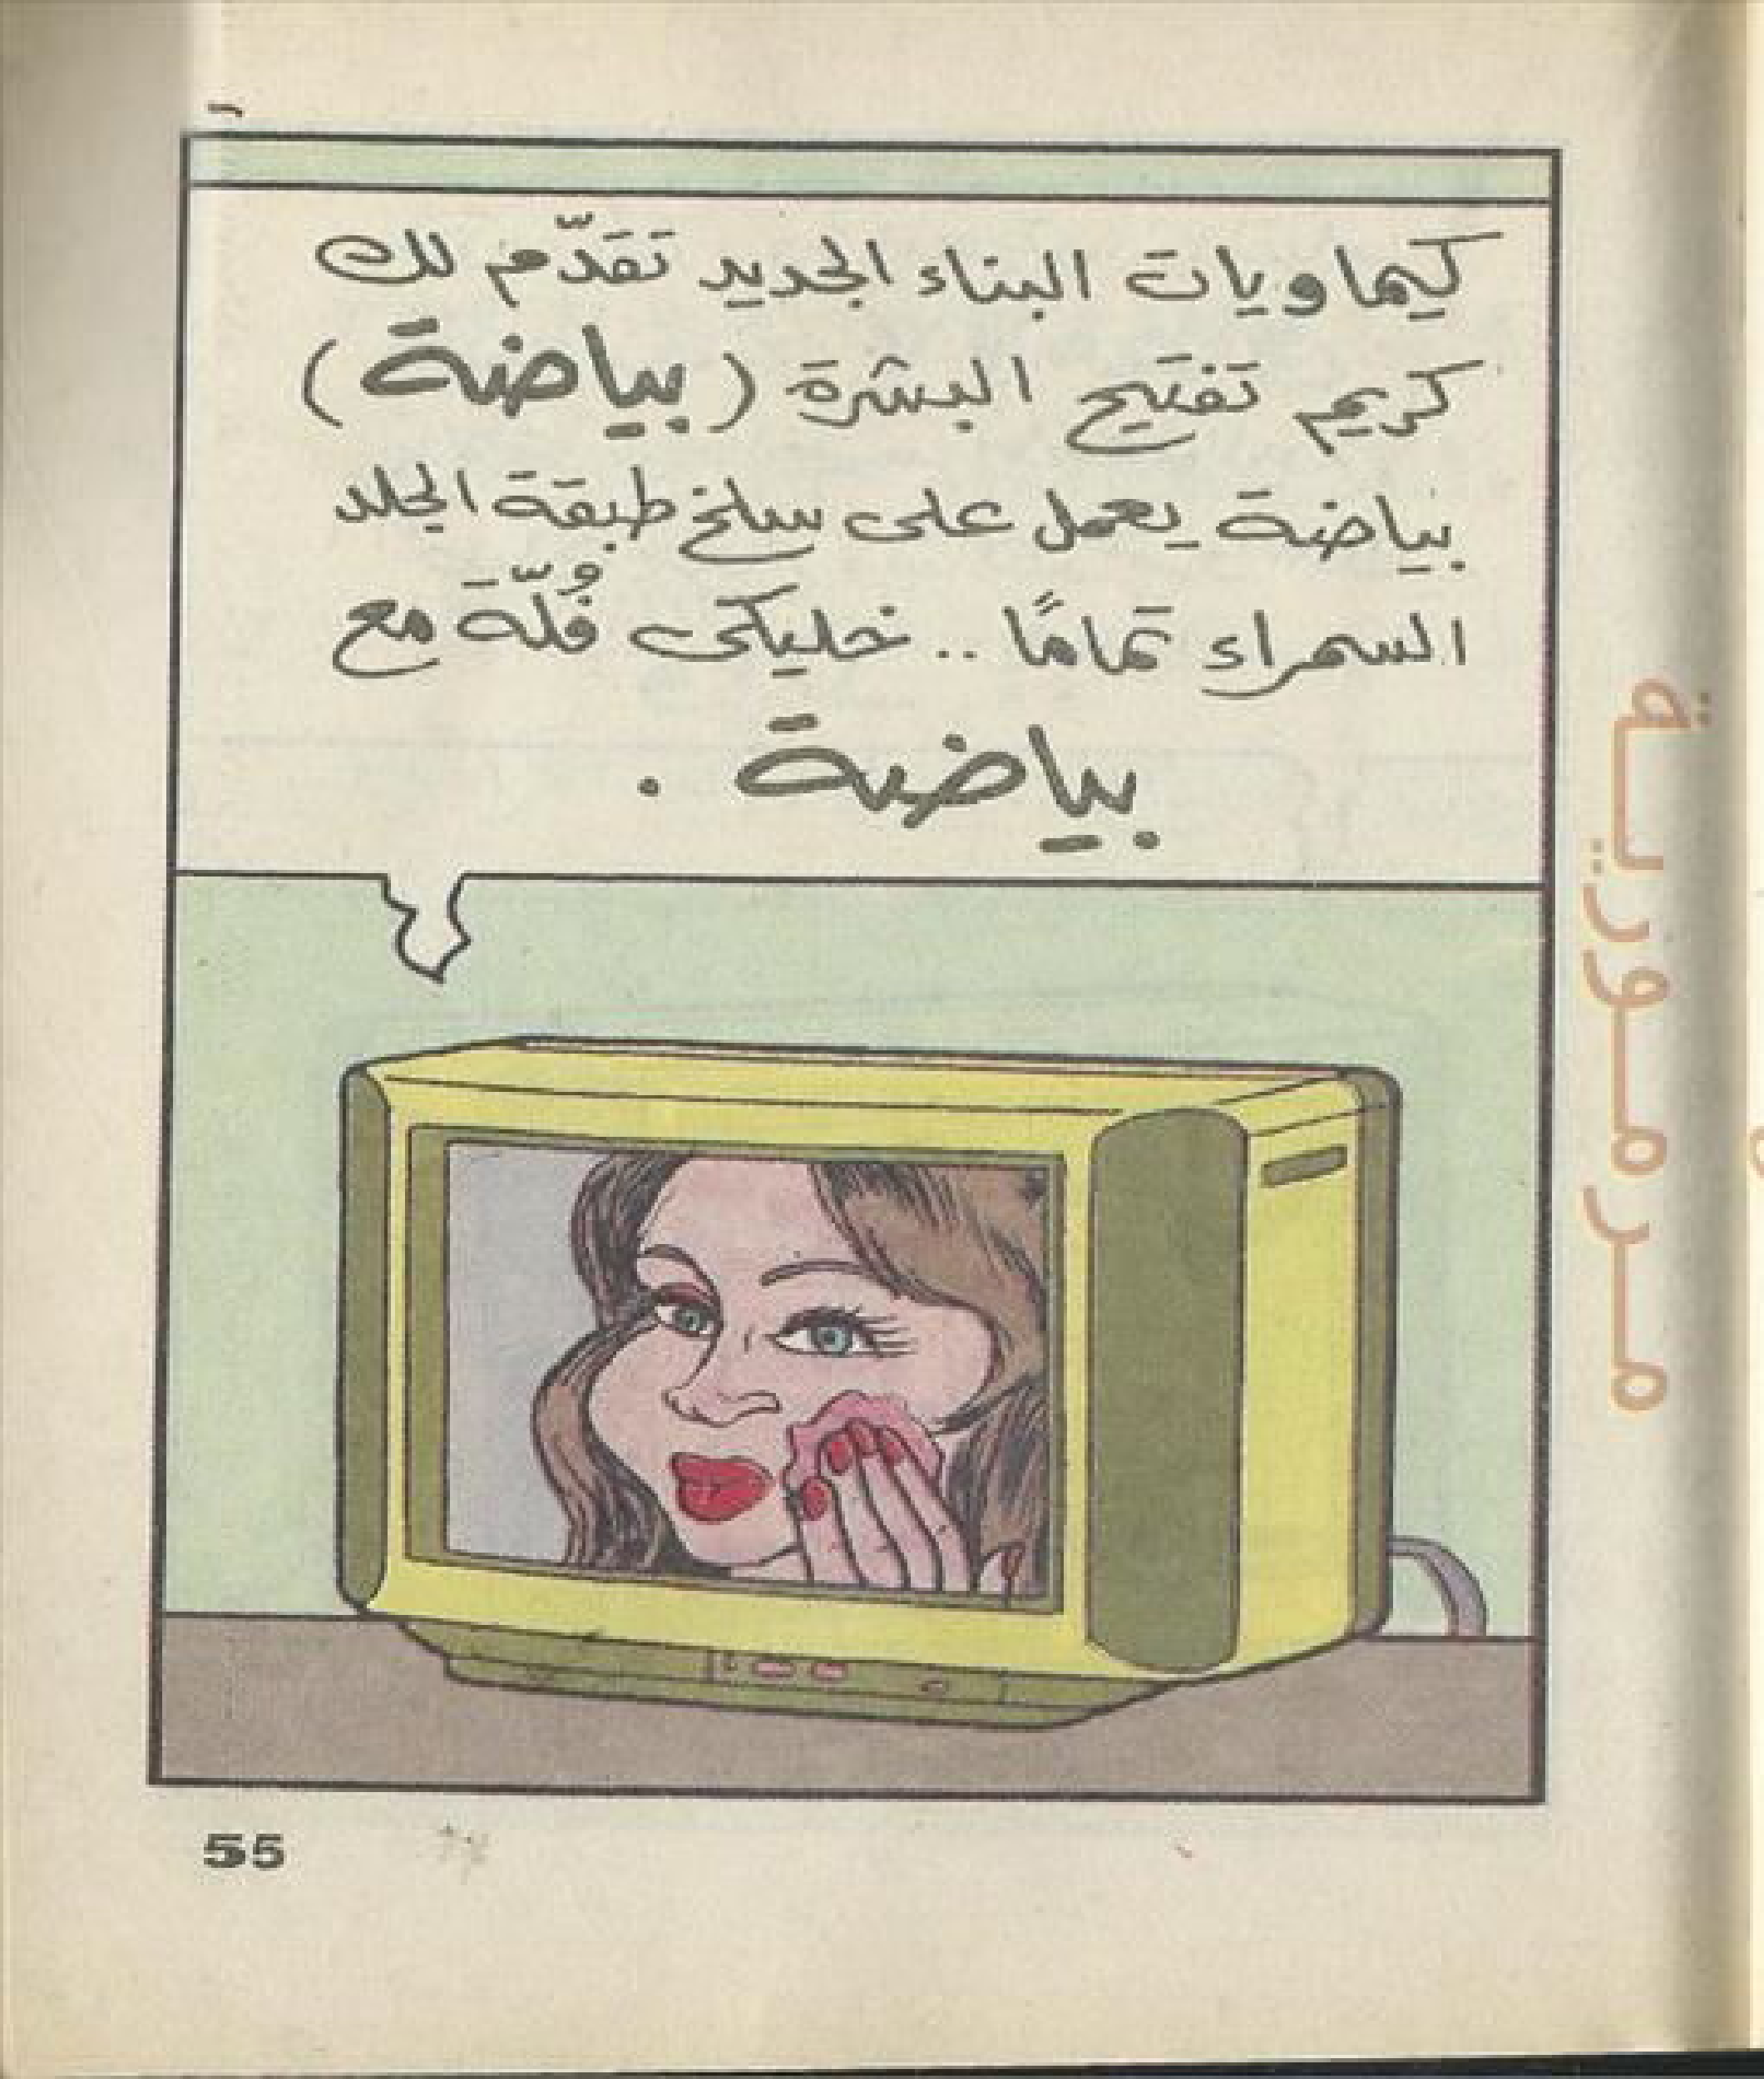 كيماويات البناء الجديد تَقَدّم لك
كريم تفتيح البشرة (بياضة)
بياضة يعمل على سلخ طبقة الجلد
السمراء تمامًا .. خليكى فُلّة مع
بياضة .
مرمورية
55